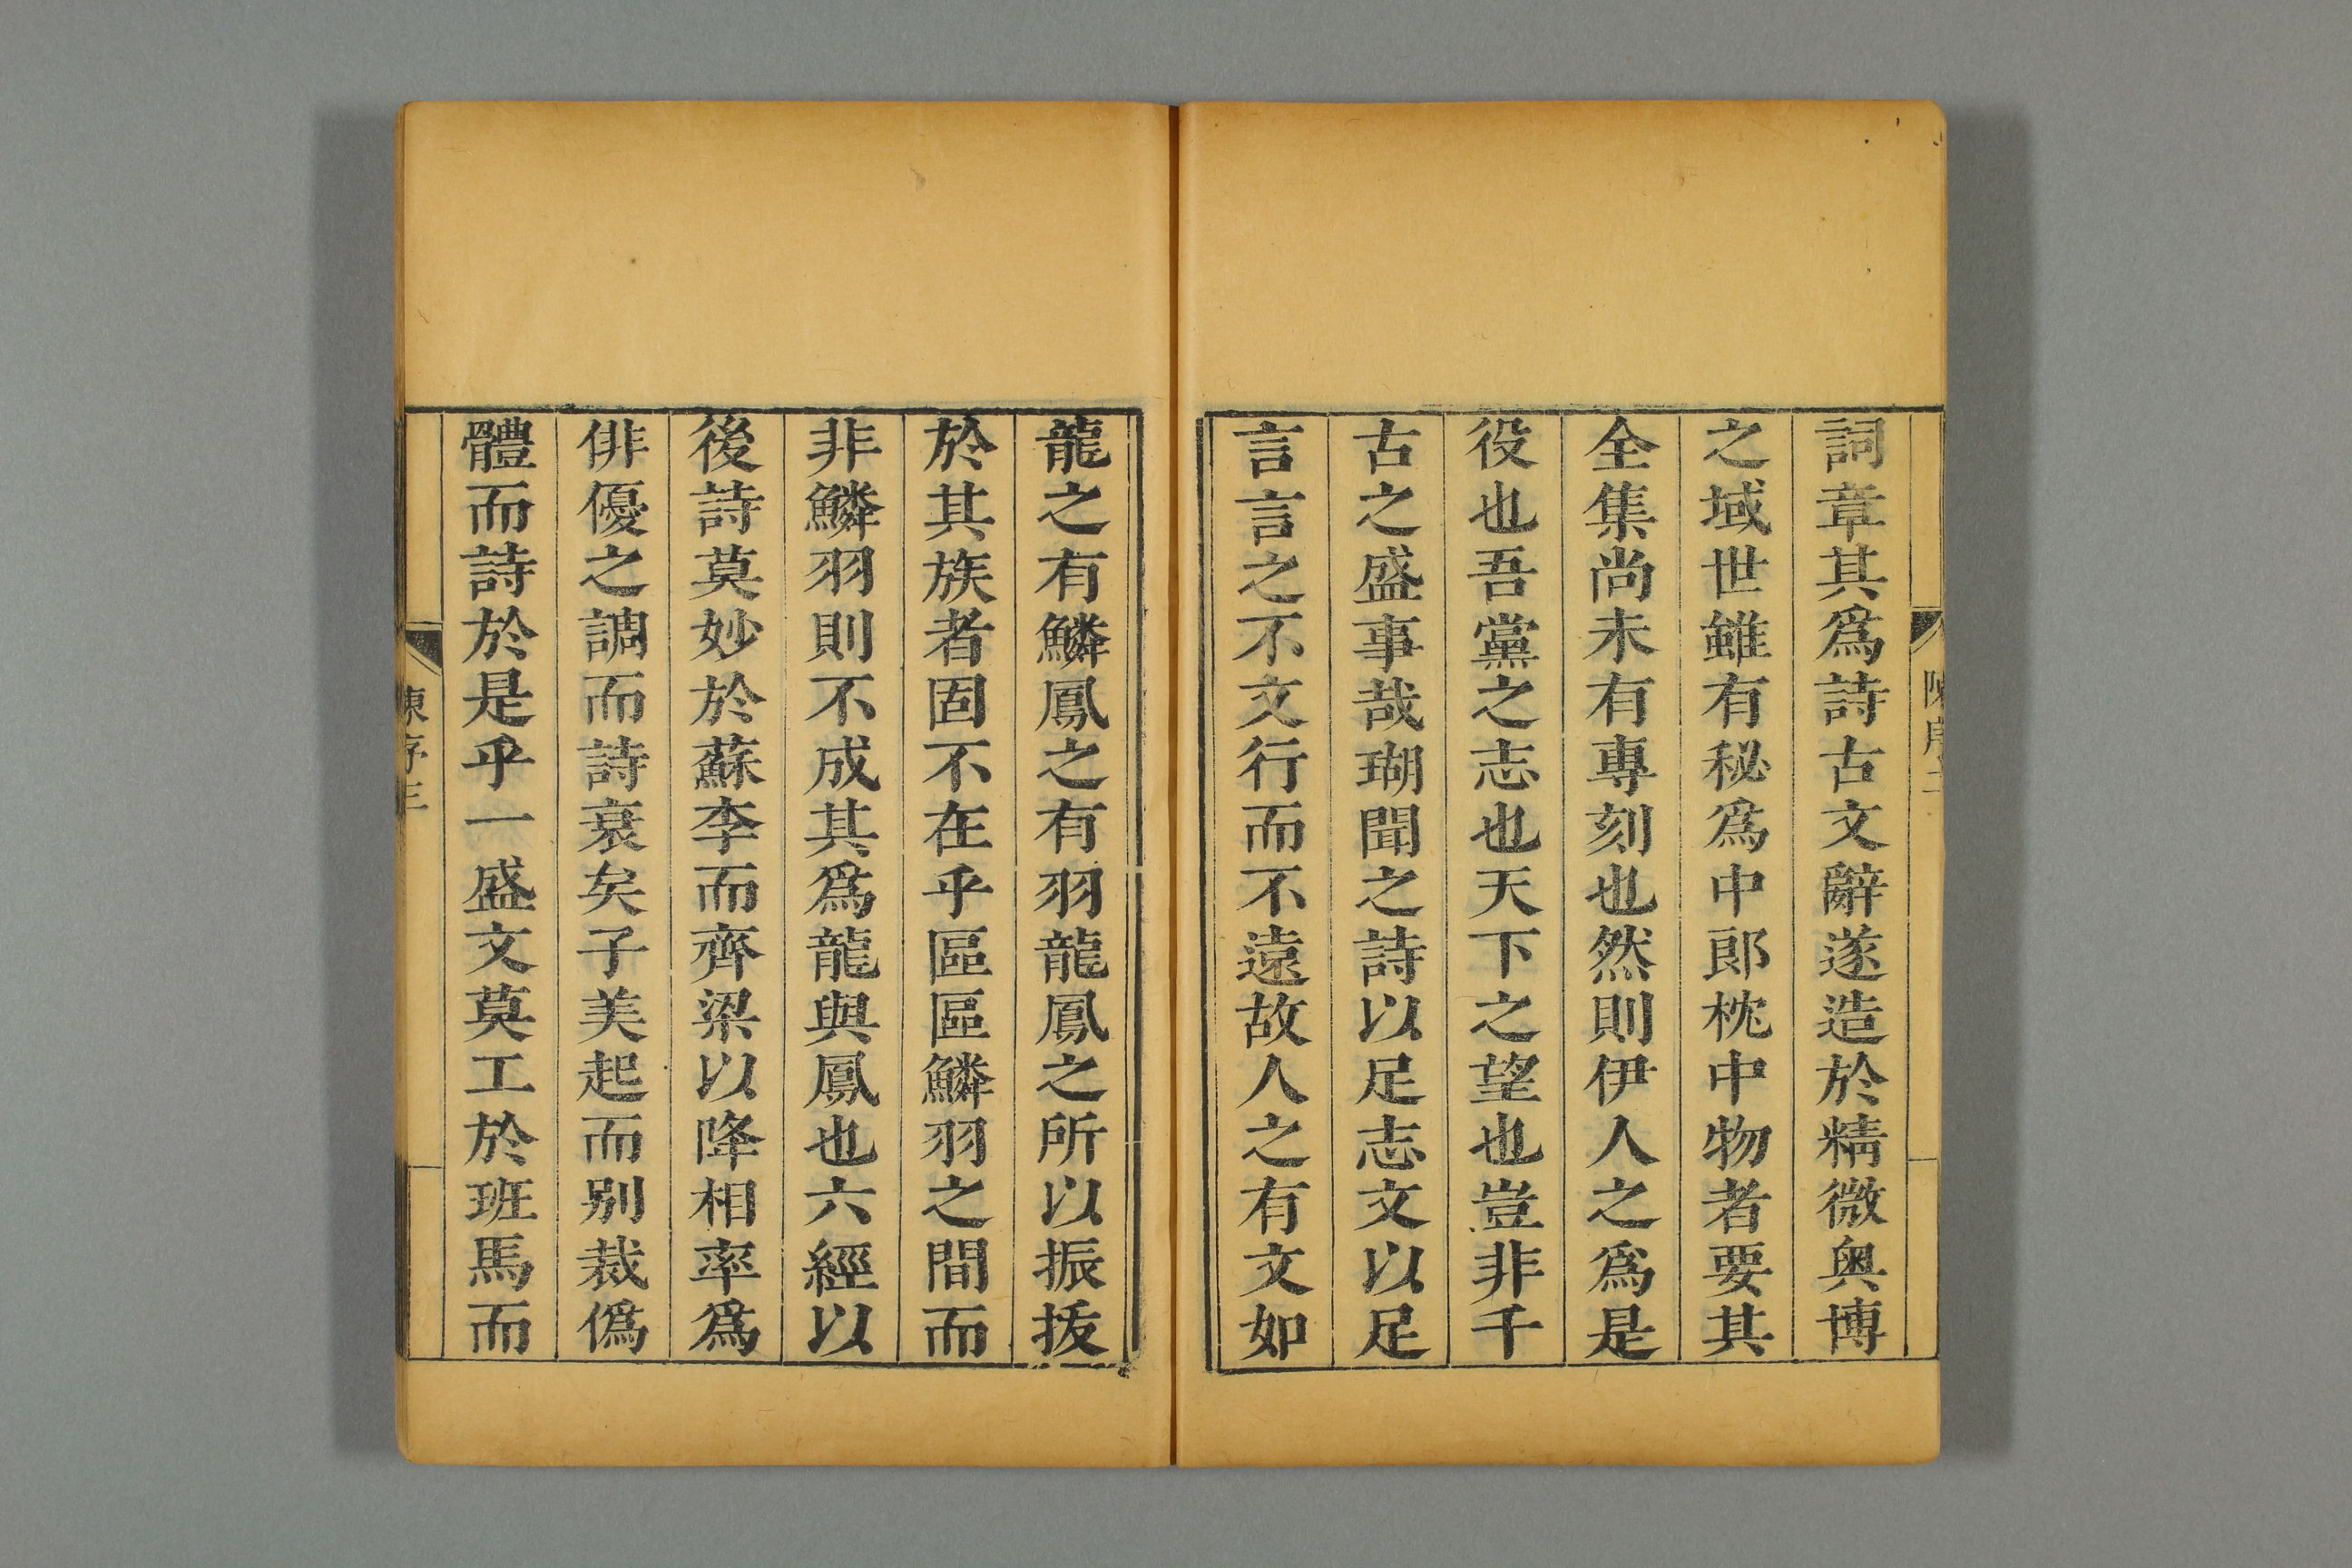 詞章其爲詩古文辭遂造於精微奥博
之域世雖有秘爲中郎枕中物者要其
全集尚未有專刻也然則伊人之爲是
役也吾黨之志也天下之望也豈非千
古之盛事哉瑚聞之詩以足志文以足
言言之不文行而不遠故人之有文如
龍之有鱗鳳之有羽龍鳳之所以振拔
於其族者固不在乎區區鱗羽之間而
非鱗羽則不成其爲龍與鳳也六經以
後詩莫妙於蘇李而齊梁以降相率爲
俳優之調而詩衰矣子美起而别裁僞
體而詩於是乎一盛文莫工於班馬而
陳序三